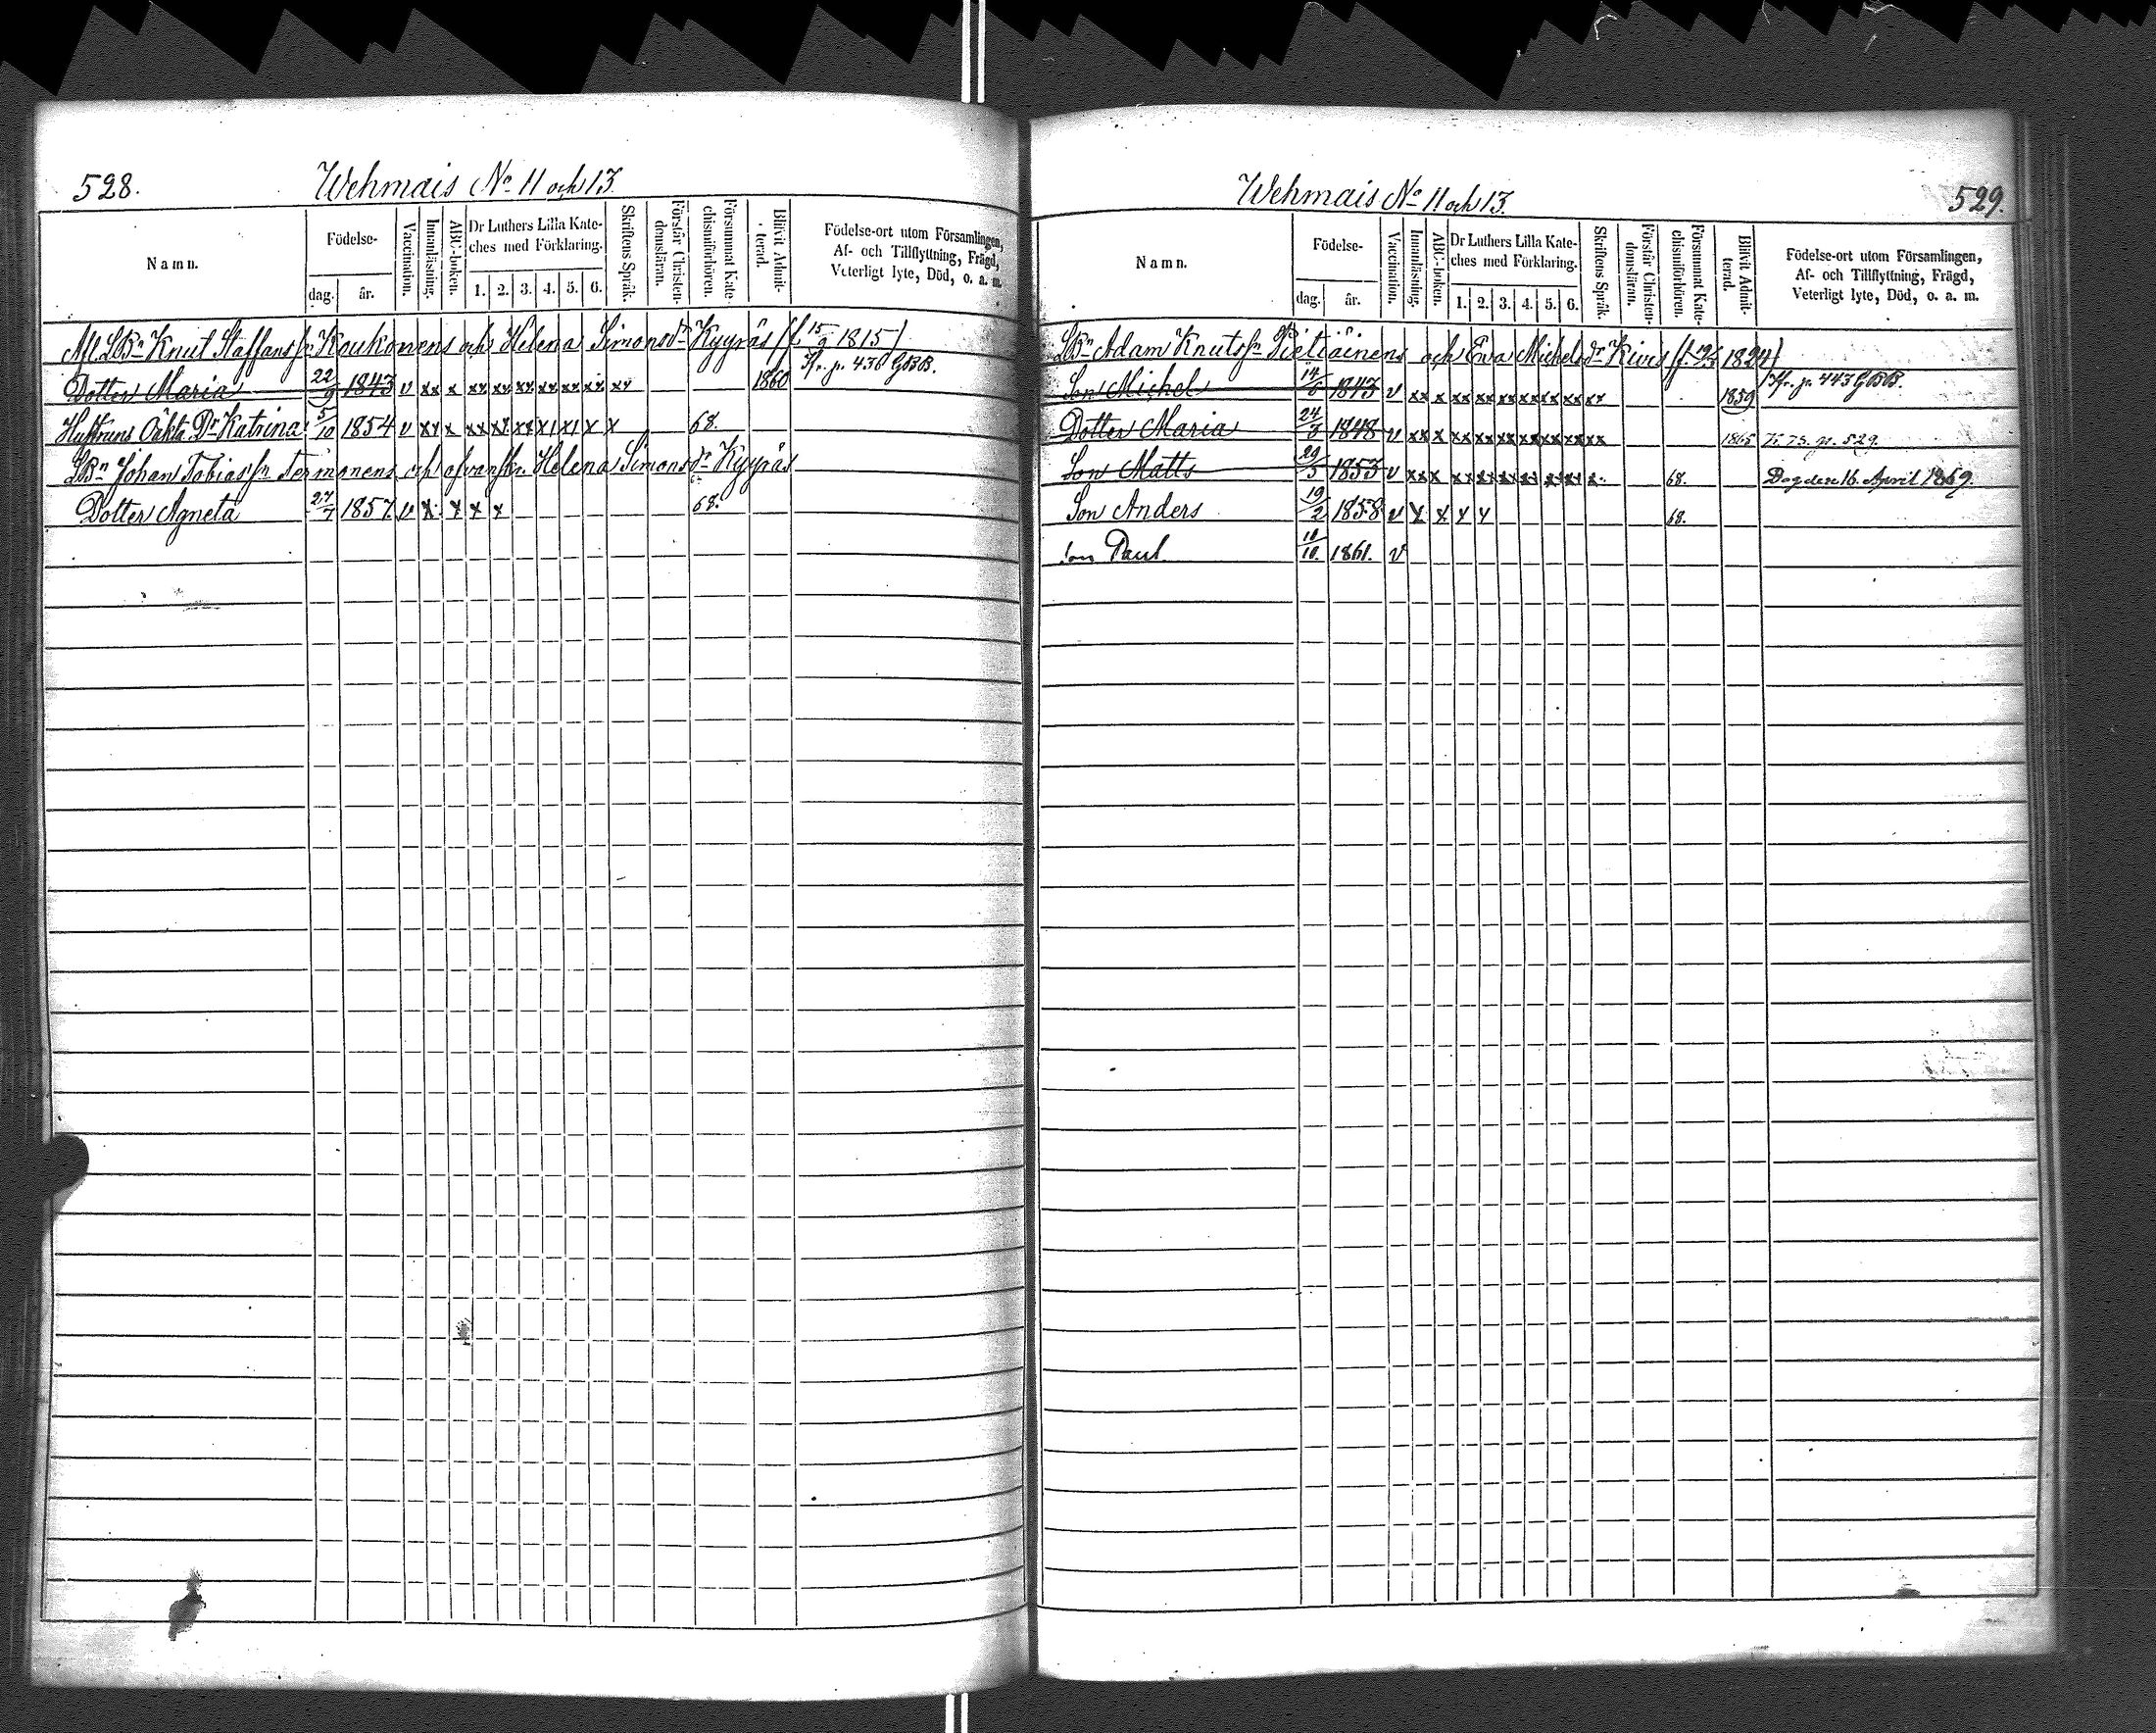 528.
Wehmais No 11 och 13.
Namn.
Födelse-
dag.
år.
Vaccination.
Innanläsning.
ABC-boken.
Dr Luthers Lilla Kate-
ches med Förklaring.
1. 2. 3. 4. 5. 6.
Skriftens Språk.
Förstår Christen-
domsläran.
Försummat Kate-
chismiförhören.
Blivit Admit-
terad.
Födelse-ort utom Församlingen,
Af- och Tillflyttning, Frägd,
Veterligt lyte, Död, o. a. m.
Afl. LBn Knut Staffansſn Koukonens och Helena Simonsdr Kyyräs (f. 15/9 1815)
Dotter Maria 22/9 1843 v xx x xx xx xx xx xx xx xx 1860 Kfr. p. 436 GBB.
Hustruns Oäkta Dr Katrina 5/10 1854 v xx x xx xx xx x1 x1 x x 68.
LBn Johan Tobiasſn Termonens och ofvanſkr. Helena Simonsdr Kyyräs
Dotter Agneta 27/7 1857 v x x x x 68.
529.
Wehmais No 11 och 13.
Namn.
Födelse-
dag.
år.
Vaccination.
Innanläsning.
ABC-boken.
Dr Luthers Lilla Kate-
ches med Förklaring.
1. 2. 3. 4. 5. 6.
Skriftens Språk.
Förstår Christen-
domsläran.
Försummat Kate-
chismiförhören.
Blivit Admit-
terad.
Födelse-ort utom Församlingen,
Af- och Tillflyttning, Frägd,
Veterligt lyte, Död, o. a. m.
LBn Adam Knutsſn Pietiäinens och Ewa Michelsdr Kives 1824)
Son Michel 14/6 1843 v xx x xx xx xx xx xx xx xx 1859 Kfr. p. 443 GBB.
Dotter Maria 24/8 1848 v xx x xx xx xx xx xx xx xx 1865 p. 529.
Son Matts 29/5 1853 v xx x xx xx xx xx xx xx x 68. Dog den 16. April 1869.
Son Anders 19/2 1858 v x x x x 68.
Son Paul 10/10. 1861. v